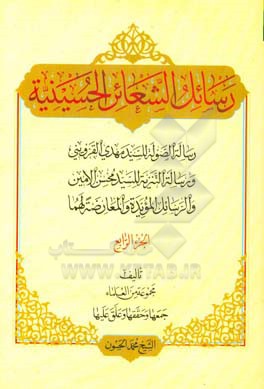 رسائل الشعائر الحسينية
رسالة الصولة للسيد مهدي القزويني
ورسالة التنزيه للسيد محسن الأمين
والرسائل المؤيدة والمعارضة لهما
الجزء الرابع
تأليف
مجموعة من العلماء
جمعها وحققها وعلق عليها
الشيخ محمد الحسون
WWW.KETAB.IR